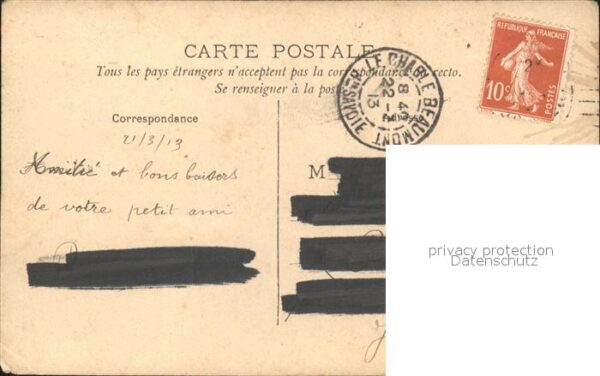 CARTE POSTALE
Tous les pays étrangers n'acceptent pas la correspondance au recto.
Se renseigner à la poste
Correspondance
Adresse
21/3/13
Amitié et bons baisers
de votre petit ami
M
REPUBLIQUE FRANÇAISE
10c
POSTES
LE CHABLE BEAUMONT
HTE SAVOIE
8 45
22 - 3
13
privacy protection
Datenschutz